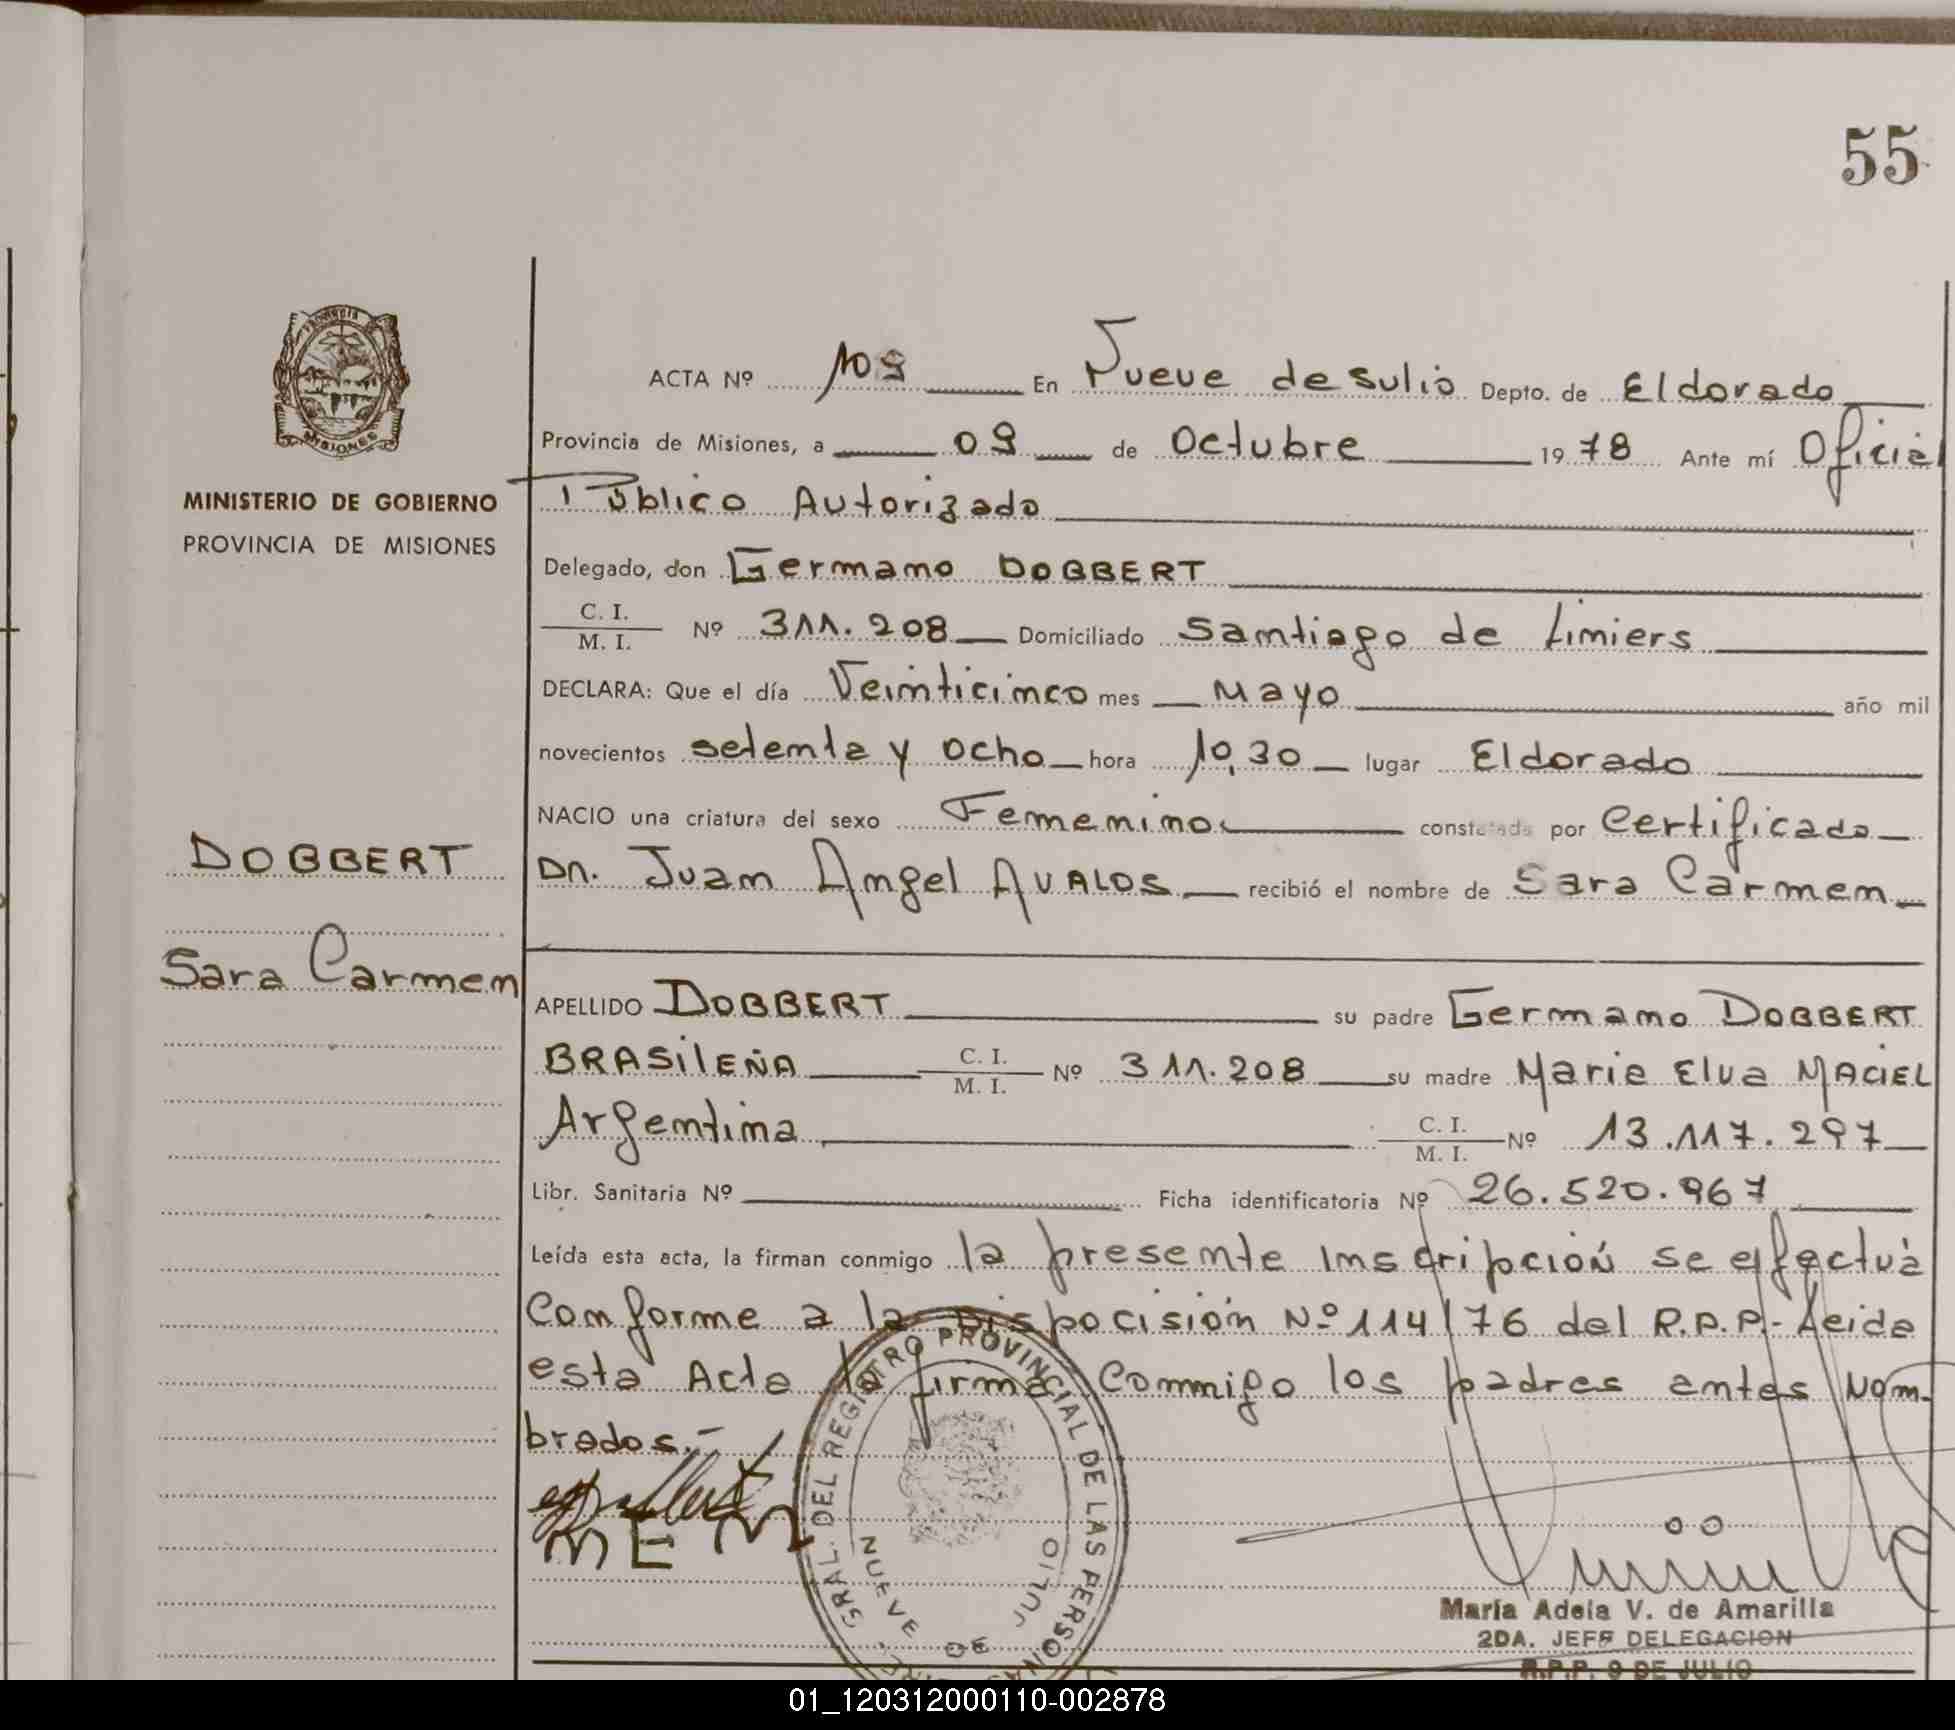 55
ACTA Nº 109 En Nueve de Julio Depto. de Eldorado
Provincia de Misiones, a 09 de Octubre 1978 Ante mí Oficial
Público Autorizado
MINISTERIO DE GOBIERNO
PROVINCIA DE MISIONES
Delegado, don Germano DOBBERT
C. I.
M. I. Nº 311.208 Domiciliado Santiago de Limiers
DECLARA: Que el día Veinticinco mes Mayo año mil
novecientos setenta y ocho hora 10,30 lugar Eldorado
NACIO una criatura del sexo Femenino constatada por Certificado
Dn. Juan Angel AVALOS recibió el nombre de Sara Carmen
DOBBERT
Sara Carmen
APELLIDO DOBBERT su padre Germano DOBBERT
BRASILEÑA C. I.
M. I. Nº 311.208 su madre Maria Elva MACIEL
Argentina C. I.
M. I. Nº 13.117.297
Libr. Sanitaria Nº Ficha identificatoria Nº 26.520.967
Leída esta acta, la firman conmigo la presente Inscripción se efectuá
Conforme a la Dispocisión Nº 114/76 del R.P.P.- Leida
esta Acta la firma Conmigo los padres antes Nom-
brados.-
MEM
GRAL. DEL REGISTRO PROVINCIAL DE LAS PERSONAS
NUEVE DE JULIO
María Adela V. de Amarilla
2DA. JEFE DELEGACION
R.P.P. 9 DE JULIO
01_120312000110-002878